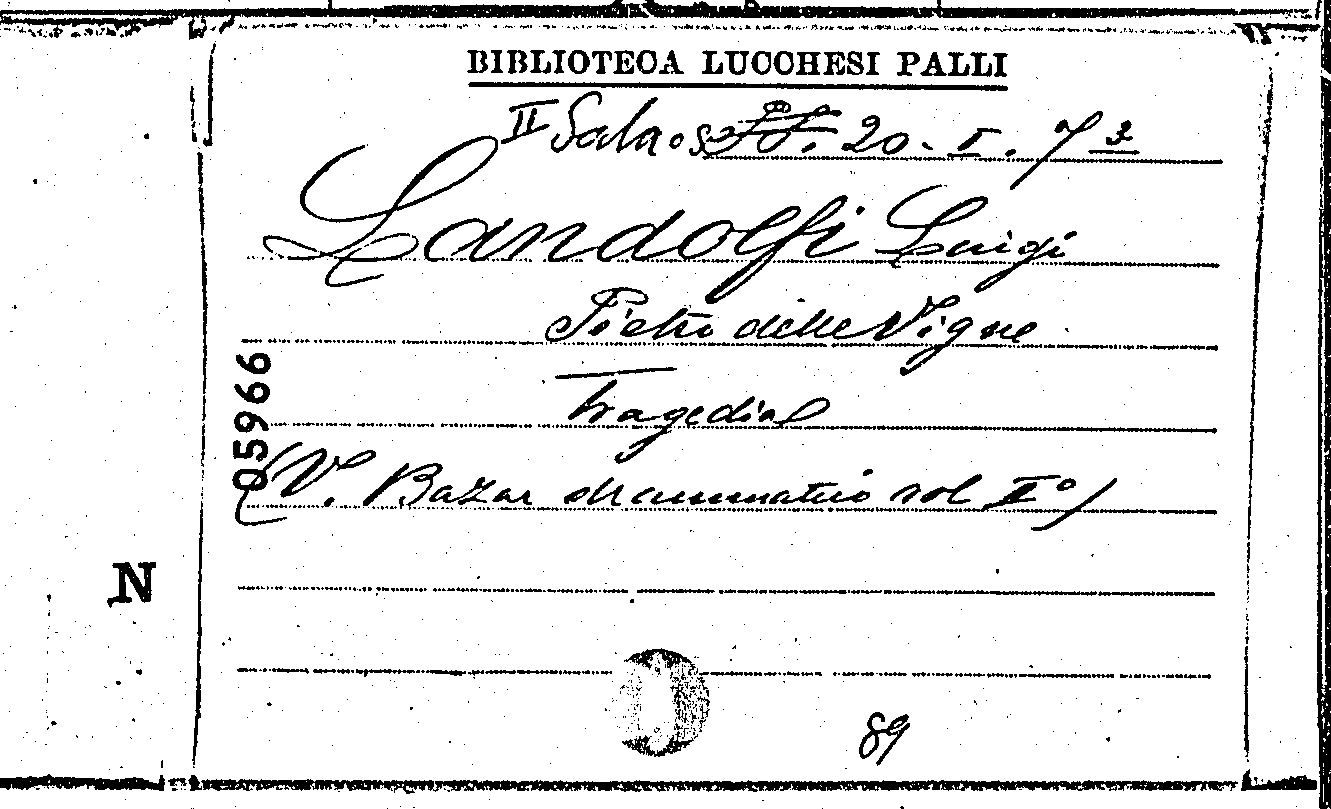 BIBLIOTECA LUCCHESI PALLI
II Sala 20. I. 7 3
Landolfi Luigi
Pietro delle Vigne
Tragedia
05966
(V. Bazar drammatico vol II°)
N
89